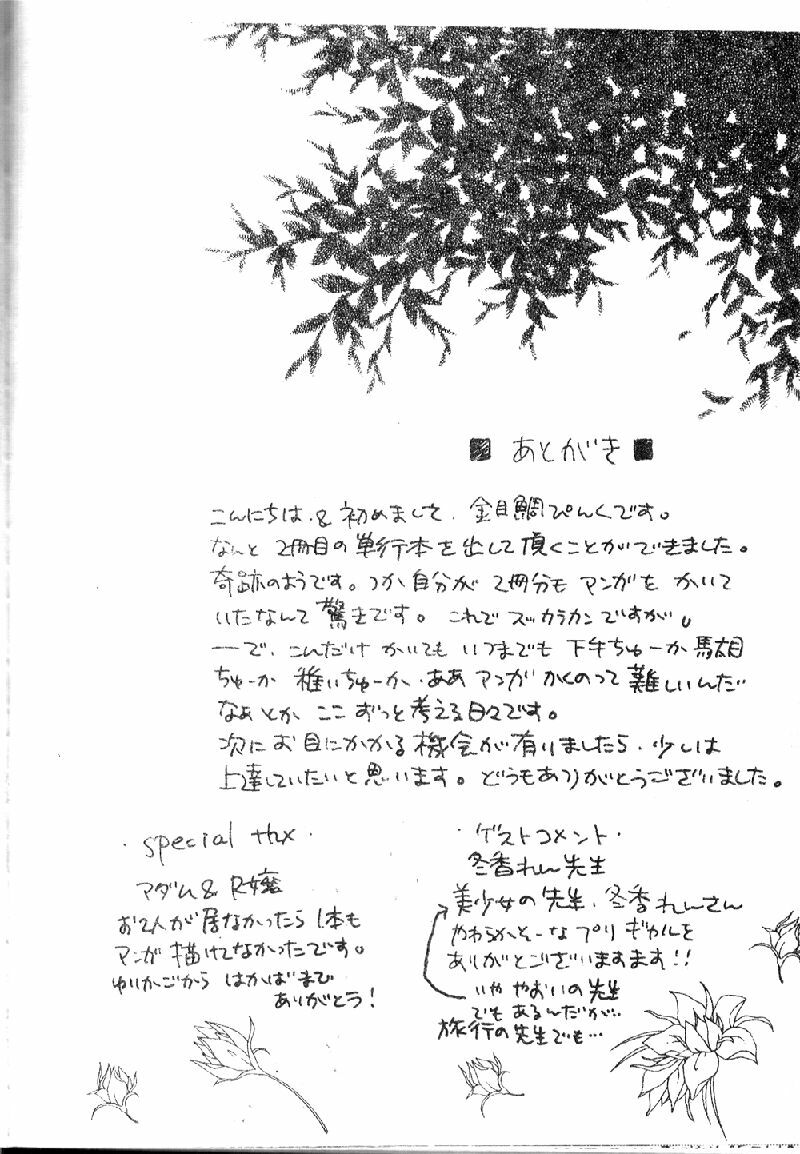 ■ あとがき ■
こんにちは & 初めまして、金目鯛ぴんくです。
なんと 2冊目の単行本を出して頂くことができました。
奇跡のようです。つか自分が 2冊分も マンガを かいて
いたなんて 驚きです。これで スッカラカンですが。
ーで、こんだけ かいても いつまでも 下手ちゅーか 馬太目
ちゅーか 稚いちゅーか、ああ マンガ かくのって 難しいんだ
なぁ とか ここ ずっと考える日々です。
次に お目にかかる 機会が有りましたら、少しは
上達していたいと思います。どうもありがとうございました。
・special thx・
マダム & R嬢
お2人が居なかったら 1本も
マンガ描けてなかったです。
ゆりかごから はかばまで
ありがとう!
・ゲストコメント・
冬香れん先生
美少女の先生、冬香れんさん
やわらかそーな プリ ギャルを
ありがとございますます!!
いや やおいの先生
でも あるんだが…
旅行の先生でも…